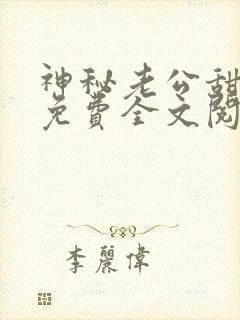 神秘老公甜
免費全文閱
李麗偉